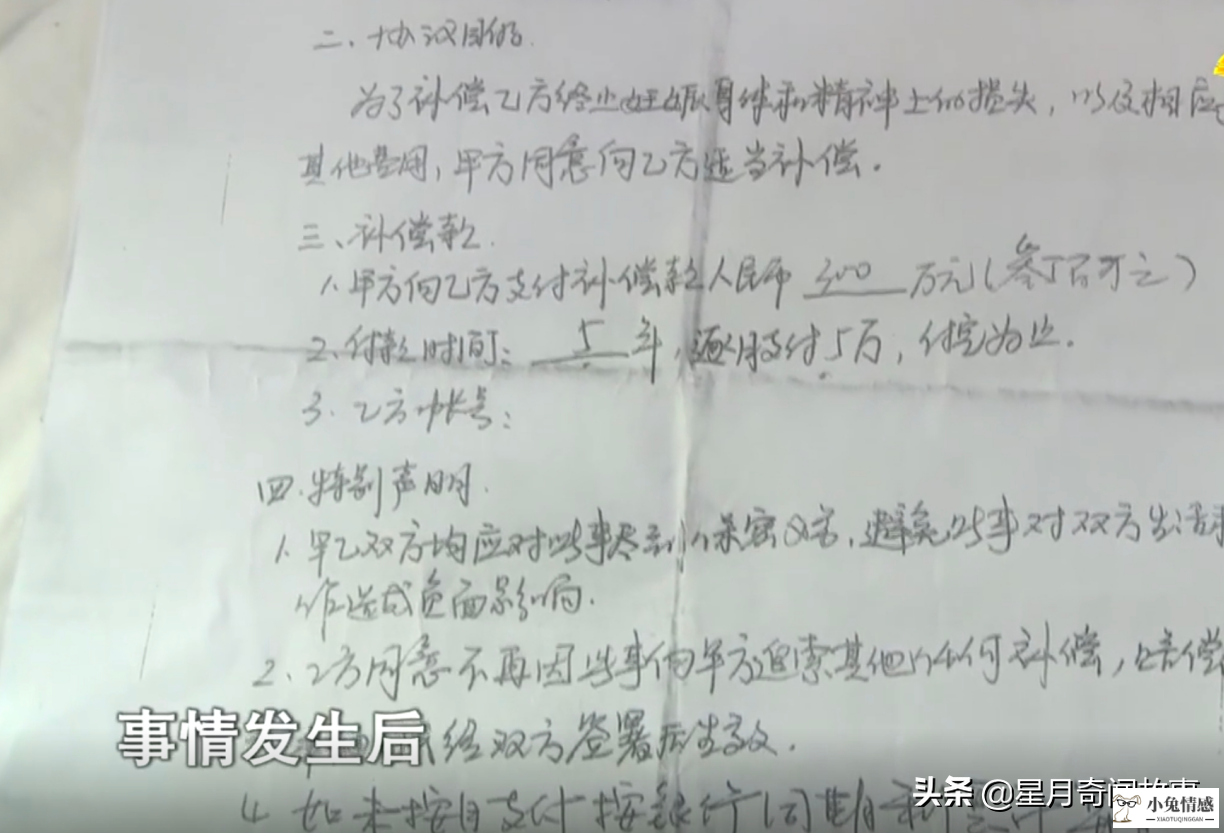 二、协议目的
为了补偿乙方终止妊娠身体和精神上的损失，以及相应
其他费用，甲方同意向乙方适当补偿。
三、补偿款
1.甲方向乙方支付补偿款人民币 300 万元(叁佰万元)
2.付款时间：5年，逐月支付5万，付完为止.
3.乙方帐号：
四.特别声明.
1.甲乙双方均应对此事尽到保密义务，避免此事对双方生活
作造成负面影响.
2.乙方同意不再因此事向甲方追索其他任何补偿，赔偿
经双方签署后生效.
事情发生后
4.如未按月支付按银行同期利
头条 @星月奇闻故事
小兔情感
XIAOTUQINGGAN